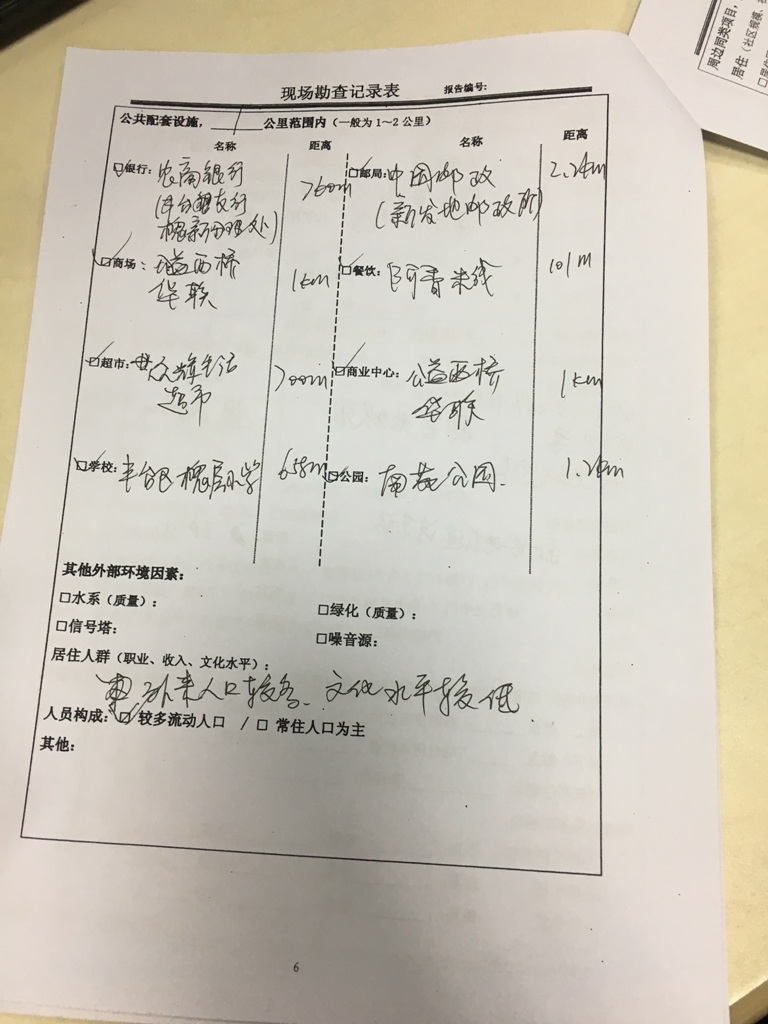 现场勘查记录表 报告编号:
公共配套设施, 1 公里范围内（一般为1～2公里）
名称 距离 名称 距离
☑银行: 农商银行 760m ☑邮局: 中国邮政 2.2km
(丰台支行 (新发地邮政所)
槐新分理处)
☑商场: 公益西桥 1km ☑餐饮: 阿香米线 101m
华联
☑超市: 世众辉生活 700m ☑商业中心: 公益西桥 1km
超市 华联
☑学校: 丰台区槐房小学 658m ☑公园: 南苑公园. 1.2km
其他外部环境因素:
□水系（质量）: □绿化（质量）:
□信号塔: □噪音源:
居住人群（职业、收入、文化水平）:
外来人口较多、文化水平较低
人员构成: ☑ 较多流动人口 / □ 常住人口为主
其他:
6
周边同类项目,
居住（社区规模、